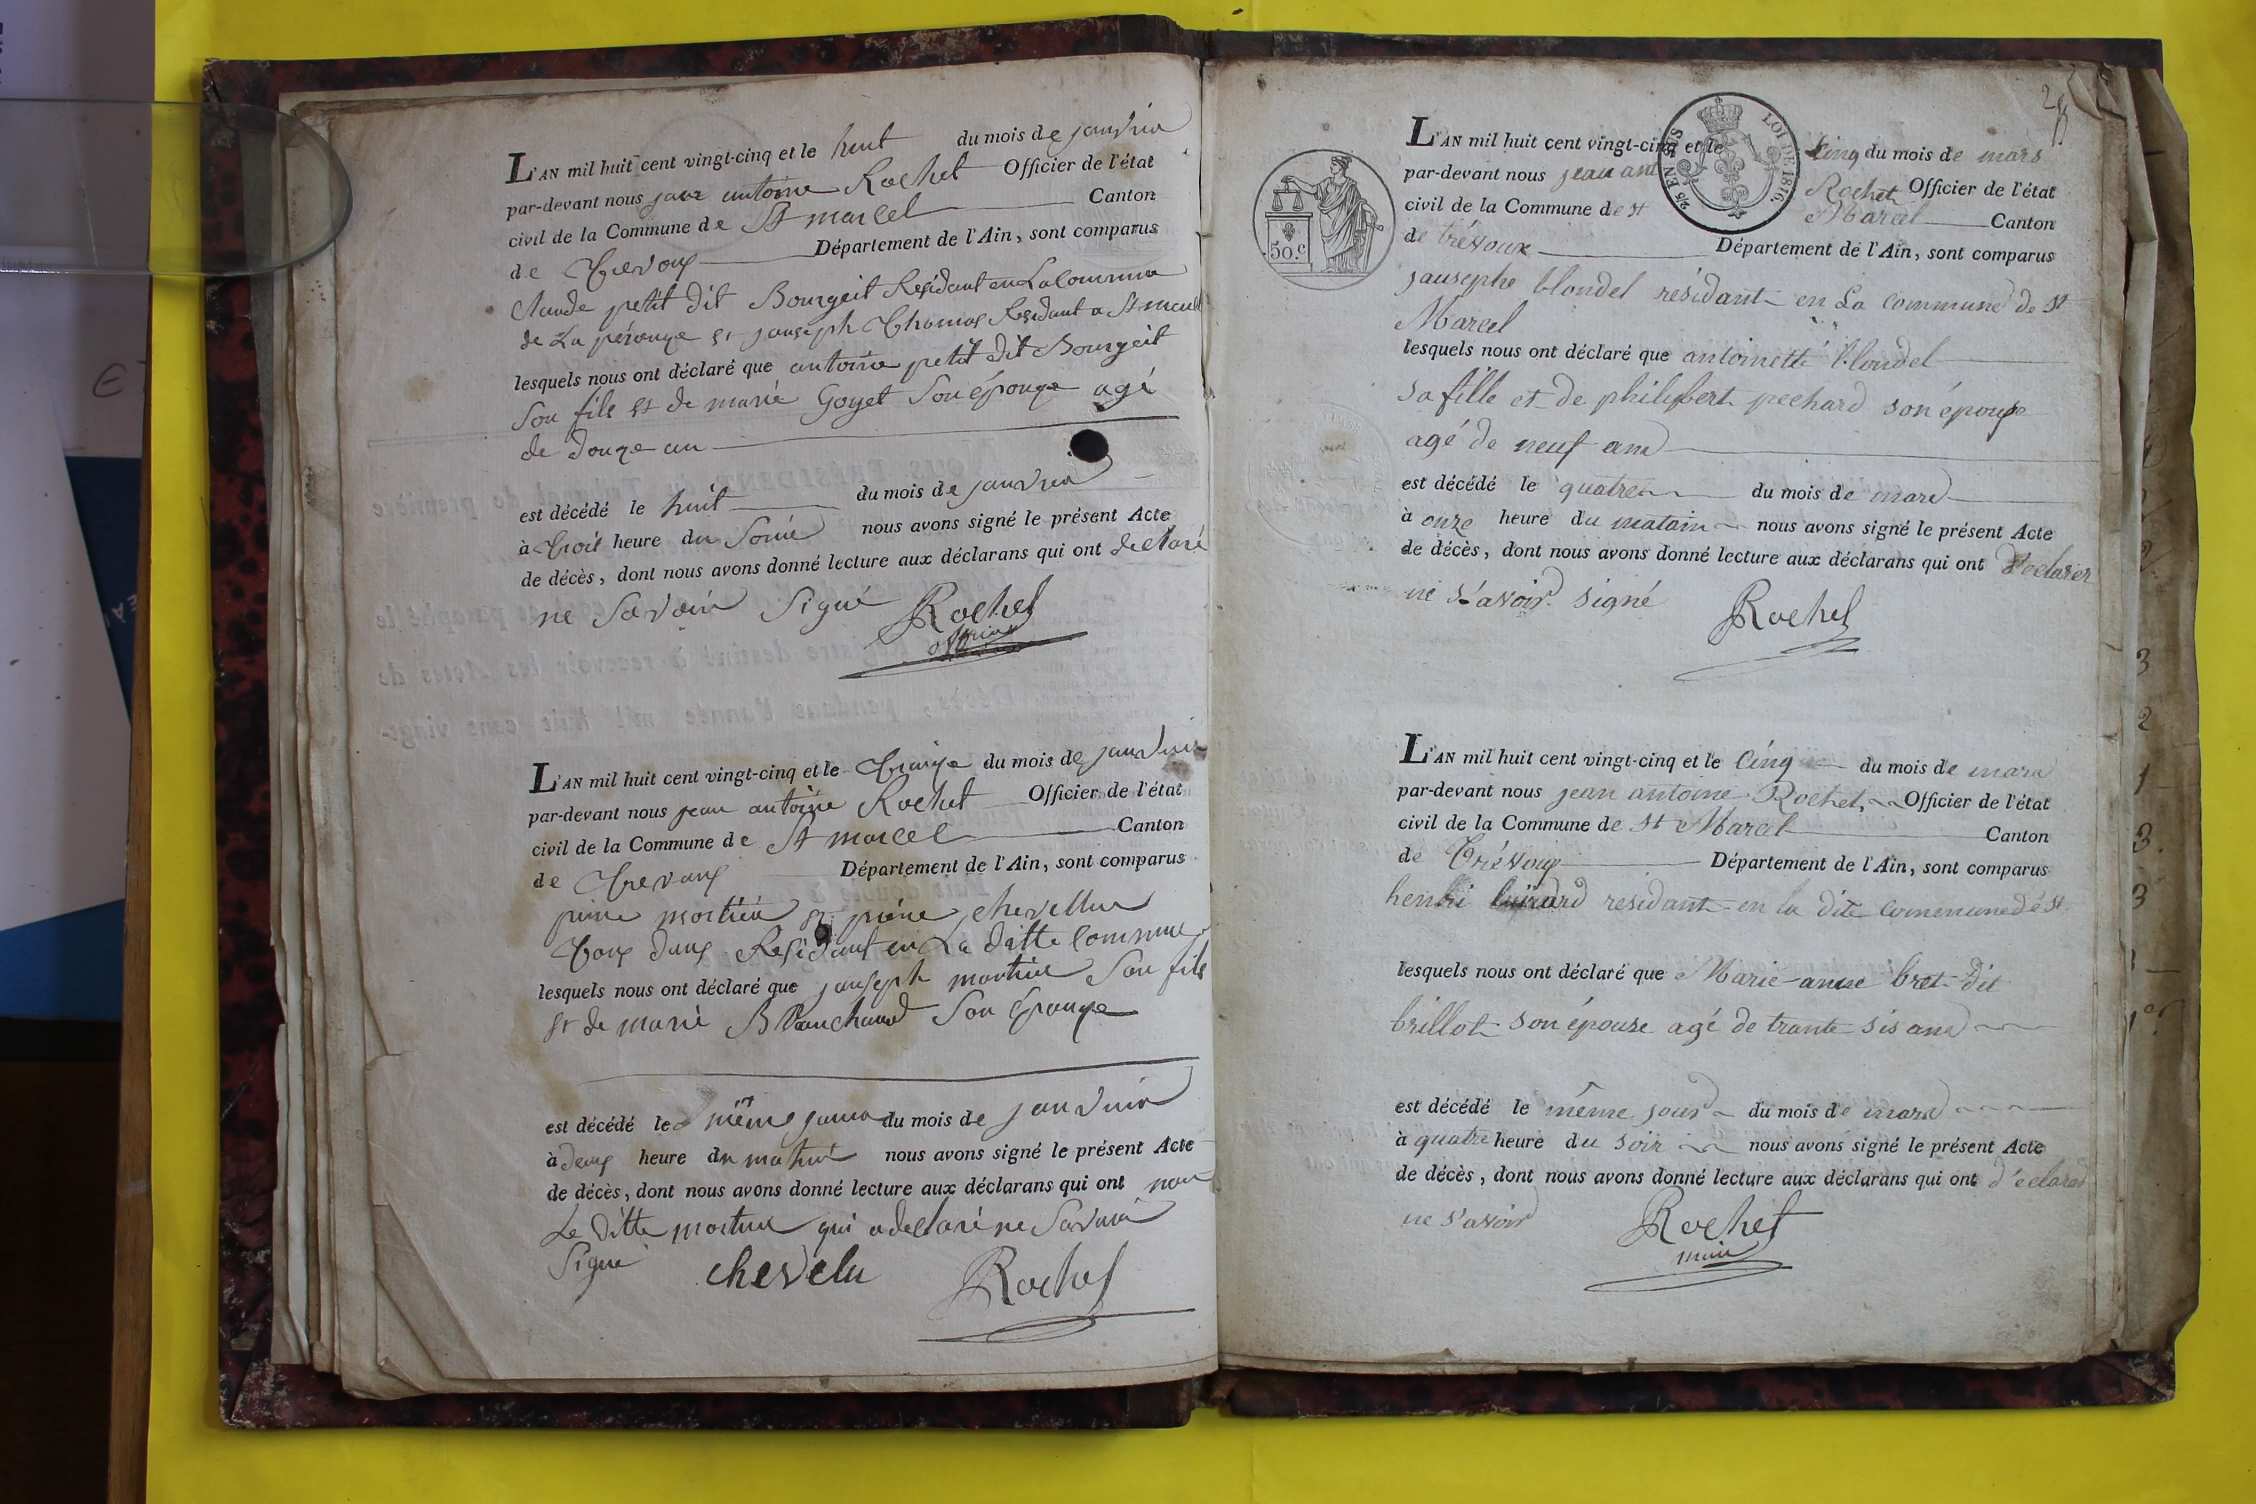 L'AN mil huit cent vingt-cinq et le huit du mois de janvier
par-devant nous jean antoine Rochet Officier de l'état
civil de la Commune de St marcel Canton
de Trevoux Département de l'Ain, sont comparus
Claude petit dit Bourgeit Residant en La commune
de La pérouze et jauseph Thomas Residant a St marcel
lesquels nous ont déclaré que antoine petit dit Bourgeit
Son fils et de marie Goyet Son épouze agé
de douze an
est décédé le huit du mois de janvier
à trois heure du Soire nous avons signé le présent Acte
de décès, dont nous avons donné lecture aux déclarans qui ont declaré
ne Savoir Signé Rochet
L'AN mil huit cent vingt-cinq et le traize du mois de janvier
par-devant nous jean antoine Rochet Officier de l'état
civil de la Commune de St marcel Canton
de Trevoux Département de l'Ain, sont comparus
pierre mortier et pierre chevellu
tous daux Residant en La ditte commune
lesquels nous ont déclaré que jauseph mortier Son fils
et de marie Blanchard Son Epouze
est décédé le même jour du mois de janvier
à deux heure du matin nous avons signé le présent Acte
de décès, dont nous avons donné lecture aux déclarans qui ont non
Le ditte mortier qui a declaré ne Savoir
Signé chevelu Rochet
2
25 EN SUS
LOI DE 1816.
50.c
L'AN mil huit cent vingt-cinq et le Cinq du mois de mars
par-devant nous jean ant Rochet Officier de l'état
civil de la Commune de St Marcel Canton
de trévoux Département de l'Ain, sont comparus
jausephe blondel résidant en La commune de St
Marcel
lesquels nous ont déclaré que antoinette blondel
sa fille et de philibert pechard son épouse
agé de neuf ans
est décédé le quatre du mois de mars
à onze heure du matain nous avons signé le présent Acte
de décès, dont nous avons donné lecture aux déclarans qui ont d'eclarer
ne s'avoir signé Rochet
L'AN mil huit cent vingt-cinq et le Cinq du mois de mars
par-devant nous jean antoine Rochet Officier de l'état
civil de la Commune de St Marcel Canton
de Trévoux Département de l'Ain, sont comparus
henri résidant en la dite commune de St
lesquels nous ont déclaré que Marie-anne bret dit
brillot son épouse agé de trante sis ans
est décédé le même jour du mois de mars
à quatre heure du soir nous avons signé le présent Acte
de décès, dont nous avons donné lecture aux déclarans qui ont d'éclaré
ne s'avoir Rochet
maire